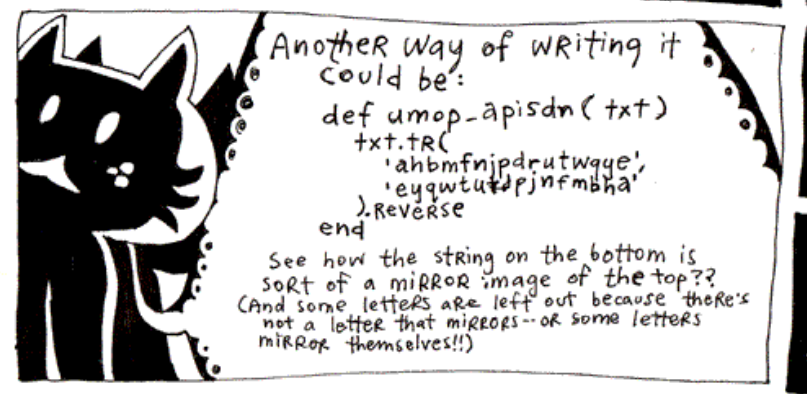 Another way of writing it
could be:
def umop_apisdn( txt)
txt.tr(
'ahbmfnjpdrutwqye',
'eyqwturdpjnfmbha'
).reverse
end
See how the string on the bottom is
sort of a mirror image of the top??
(And some letters are left out because there's
not a letter that mirrors--or some letters
mirror themselves!!)